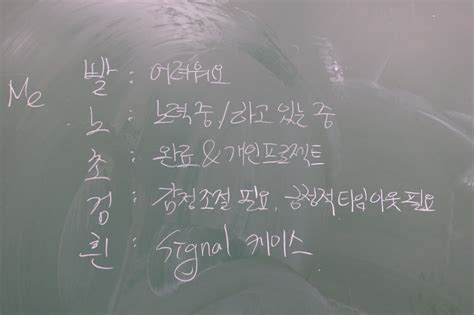 Me
빨 : 어려워요
노 : 노력중/하고 있는 중
초 : 완료 & 개인프로젝트
검 : 감정조절 필요, 긍정적타임아웃 필요
흰 : Signal 케이스